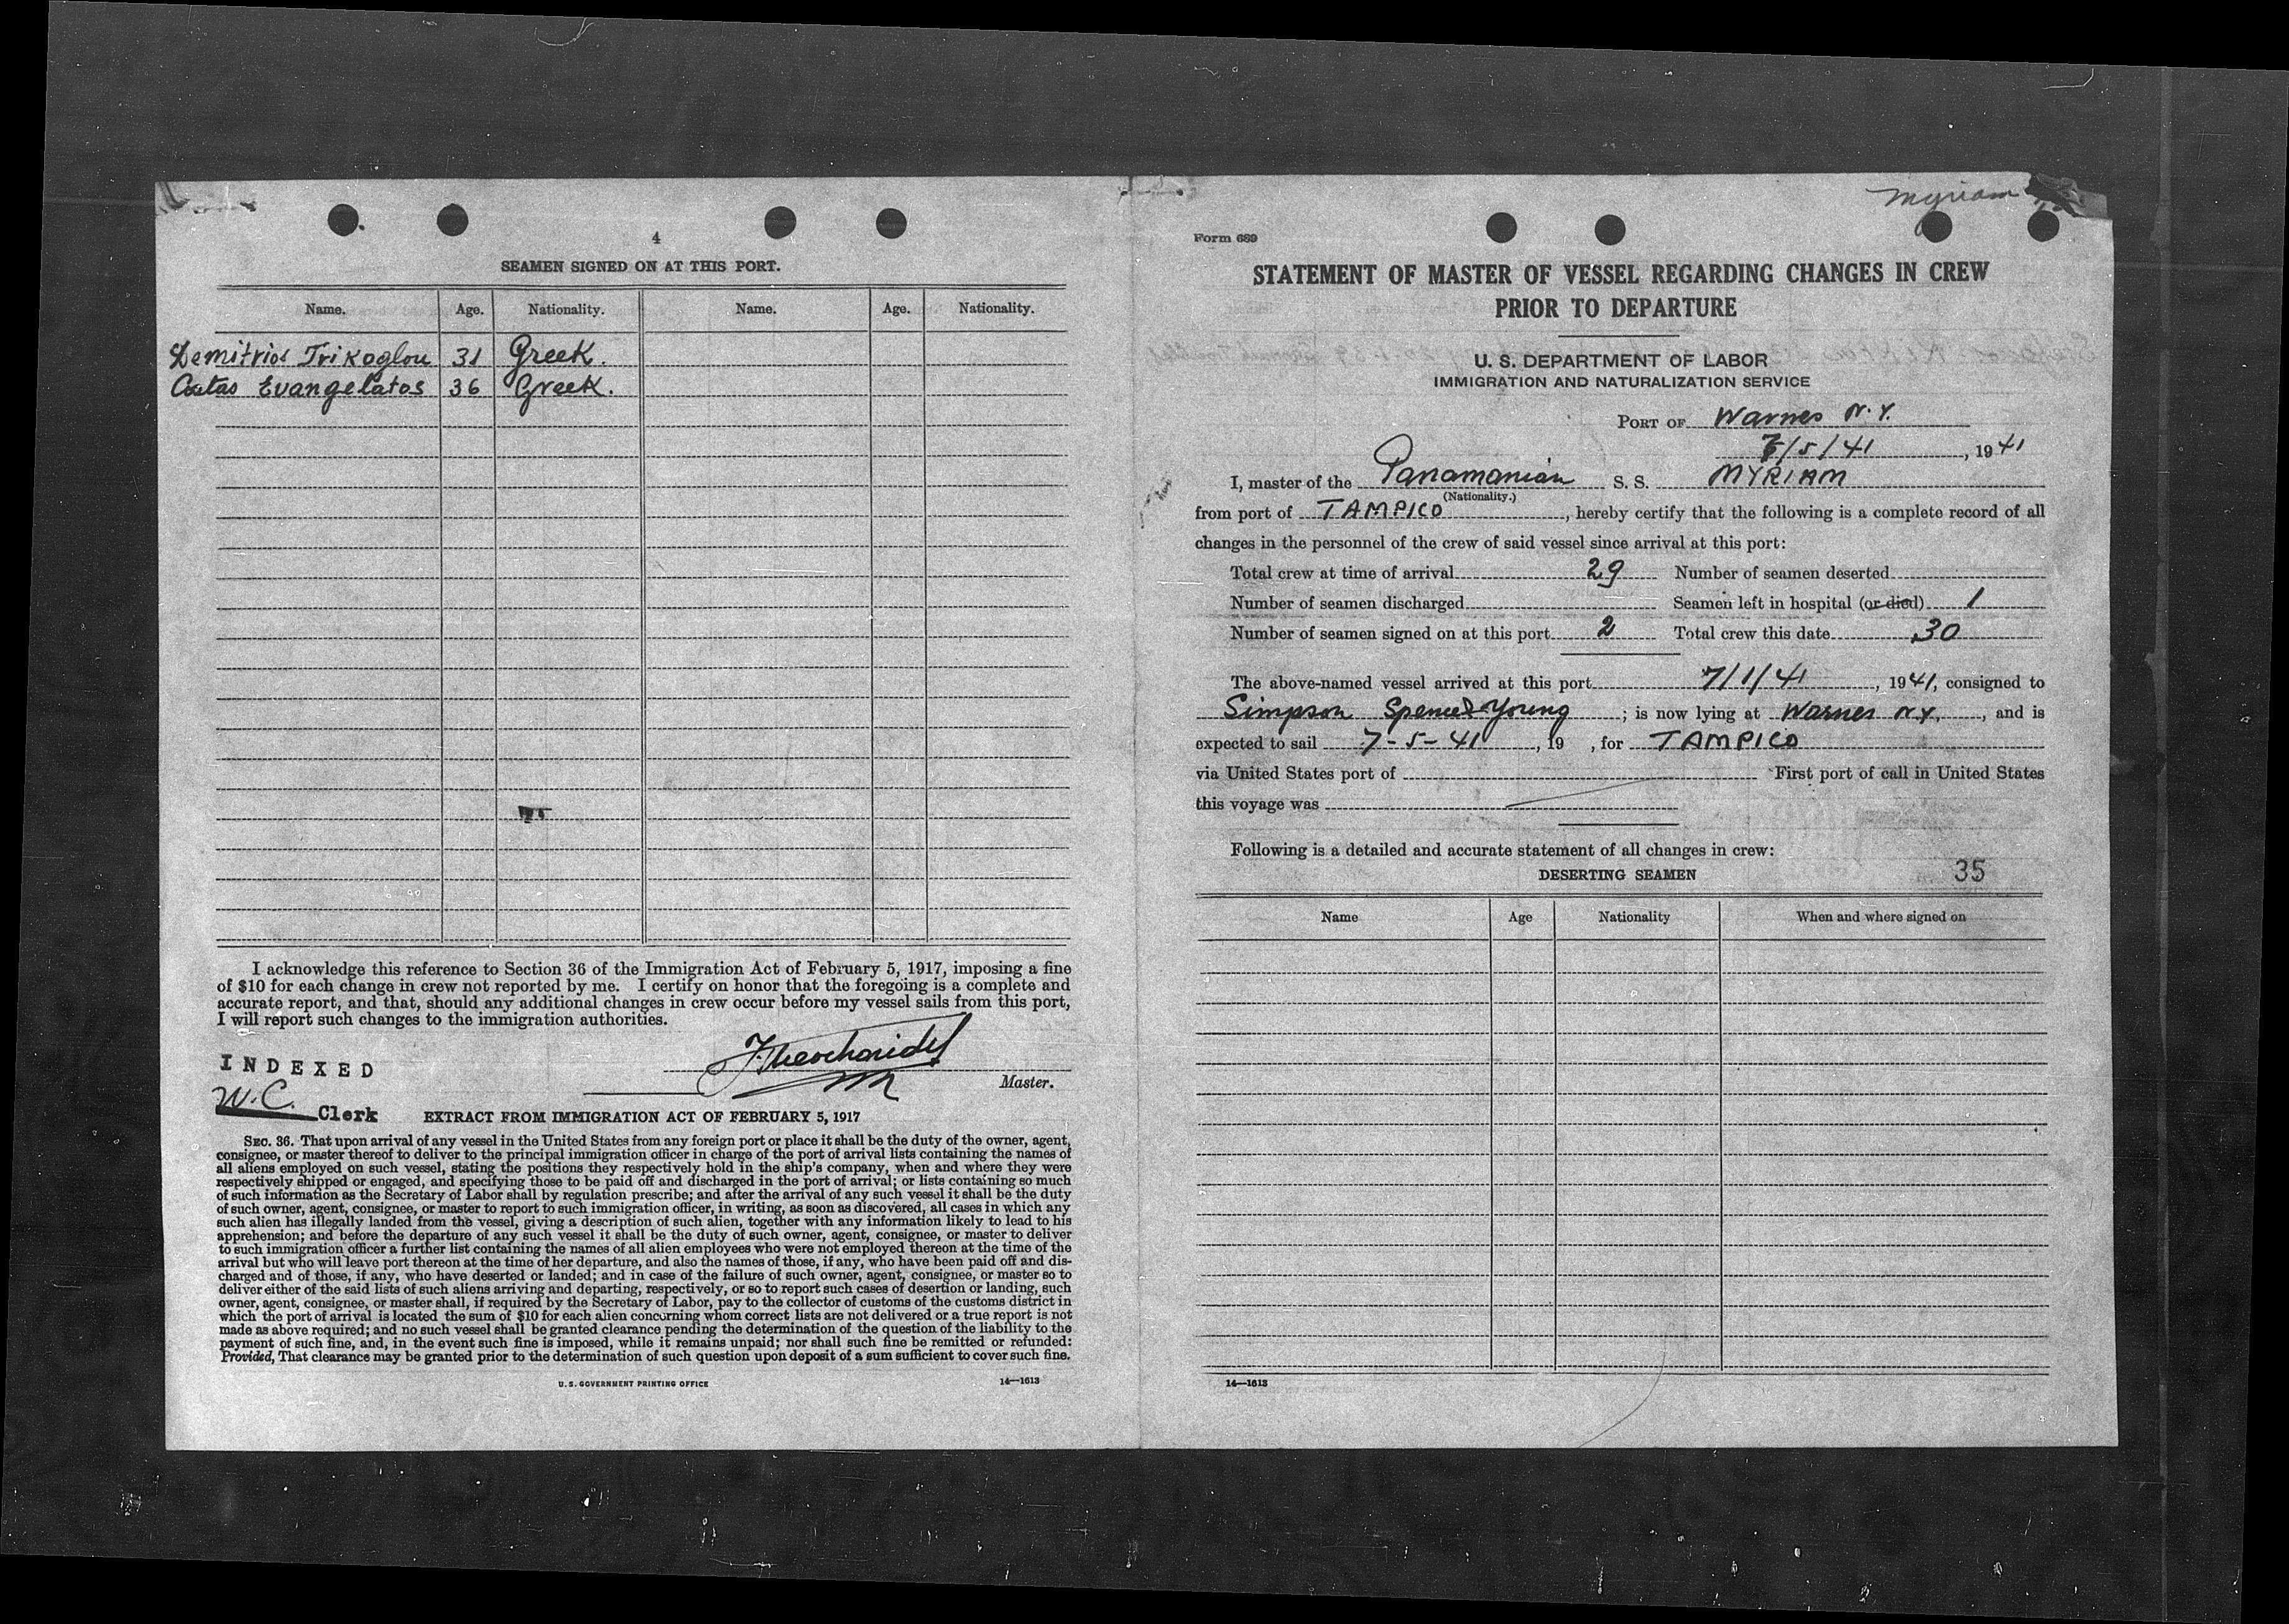 4
SEAMEN SIGNED ON AT THIS PORT.
Name. Age. Nationality. Name. Age. Nationality.
Demitrios Trikoglou 31 Greek.
Costas Evangelatos 36 Greek.
I acknowledge this reference to Section 36 of the Immigration Act of February 5, 1917, imposing a fine
of $10 for each change in crew not reported by me. I certify on honor that the foregoing is a complete and
accurate report, and that, should any additional changes in crew occur before my vessel sails from this port,
I will report such changes to the immigration authorities.
INDEXED
Master.
W.C. Clerk
EXTRACT FROM IMMIGRATION ACT OF FEBRUARY 5, 1917
SEC. 36. That upon arrival of any vessel in the United States from any foreign port or place it shall be the duty of the owner, agent,
consignee, or master thereof to deliver to the principal immigration officer in charge of the port of arrival lists containing the names of
all aliens employed on such vessel, stating the positions they respectively hold in the ship's company, when and where they were
respectively shipped or engaged, and specifying those to be paid off and discharged in the port of arrival; or lists containing so much
of such information as the Secretary of Labor shall by regulation prescribe; and after the arrival of any such vessel it shall be the duty
of such owner, agent, consignee, or master to report to such immigration officer, in writing, as soon as discovered, all cases in which any
such alien has illegally landed from the vessel, giving a description of such alien, together with any information likely to lead to his
apprehension; and before the departure of any such vessel it shall be the duty of such owner, agent, consignee, or master to deliver
to such immigration officer a further list containing the names of all alien employees who were not employed thereon at the time of the
arrival but who will leave port thereon at the time of her departure, and also the names of those, if any, who have been paid off and dis-
charged and of those, if any, who have deserted or landed; and in case of the failure of such owner, agent, consignee, or master so to
deliver either of the said lists of such aliens arriving and departing, respectively, or so to report such cases of desertion or landing, such
owner, agent, consignee, or master shall, if required by the Secretary of Labor, pay to the collector of customs of the customs district in
which the port of arrival is located the sum of $10 for each alien concerning whom correct lists are not delivered or a true report is not
made as above required; and no such vessel shall be granted clearance pending the determination of the question of the liability to the
payment of such fine, and, in the event such fine is imposed, while it remains unpaid; nor shall such fine be remitted or refunded:
Provided, That clearance may be granted prior to the determination of such question upon deposit of a sum sufficient to cover such fine.
U. S. GOVERNMENT PRINTING OFFICE 14—1613
Myriam
Form 689
STATEMENT OF MASTER OF VESSEL REGARDING CHANGES IN CREW
PRIOR TO DEPARTURE
U. S. DEPARTMENT OF LABOR
IMMIGRATION AND NATURALIZATION SERVICE
PORT OF Warnes N.Y.
7/5/41, 1941
I, master of the Panamanian S. S. MYRIAM
(Nationality.)
from port of TAMPICO, hereby certify that the following is a complete record of all
changes in the personnel of the crew of said vessel since arrival at this port:
Total crew at time of arrival 29 Number of seamen deserted
Number of seamen discharged Seamen left in hospital (or died) 1
Number of seamen signed on at this port 2 Total crew this date 30
The above-named vessel arrived at this port 7/1/41, 1941, consigned to
Simpson Spence & Young; is now lying at Warnes N.Y., and is
expected to sail 7-5-41, 19 , for TAMPICO
via United States port of First port of call in United States
this voyage was
Following is a detailed and accurate statement of all changes in crew:
DESERTING SEAMEN 35
Name Age Nationality When and where signed on
14—1613